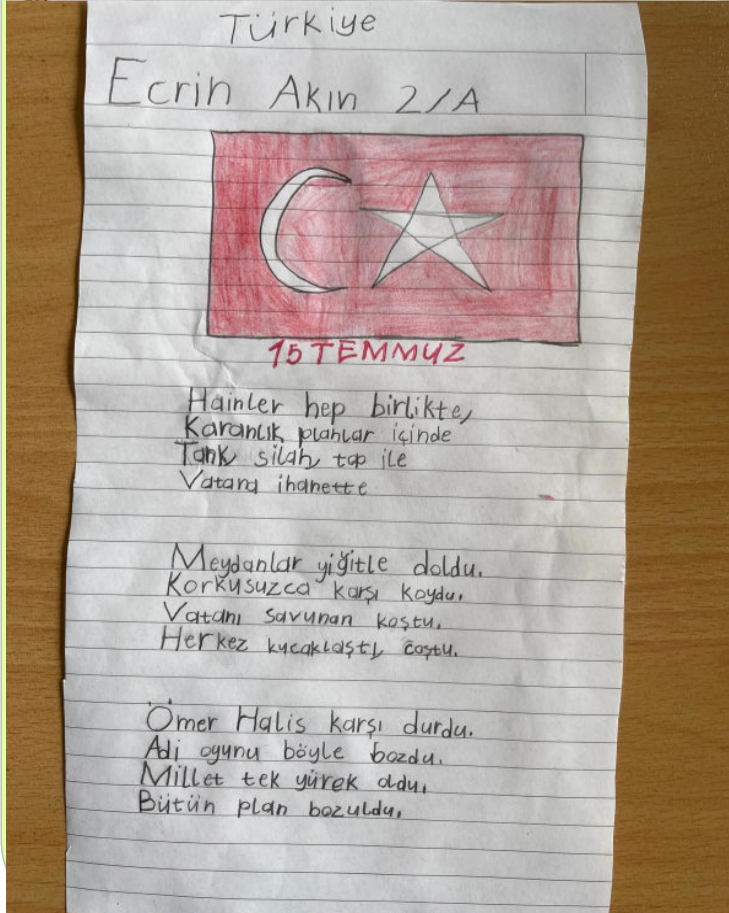 Türkiye
Ecrin Akın 2/A
15 TEMMUZ
Hainler hep birlikte,
Karanlık planlar içinde
Tank, silah, top ile
Vatana ihanette
Meydanlar yiğitle doldu.
Korkusuzca karşı koydu.
Vatanı savunan koştu.
Herkez kucaklaştı, coştu.
Ömer Halis karşı durdu.
Adi oyunu böyle bozdu.
Millet tek yürek oldu.
Bütün plan bozuldu.